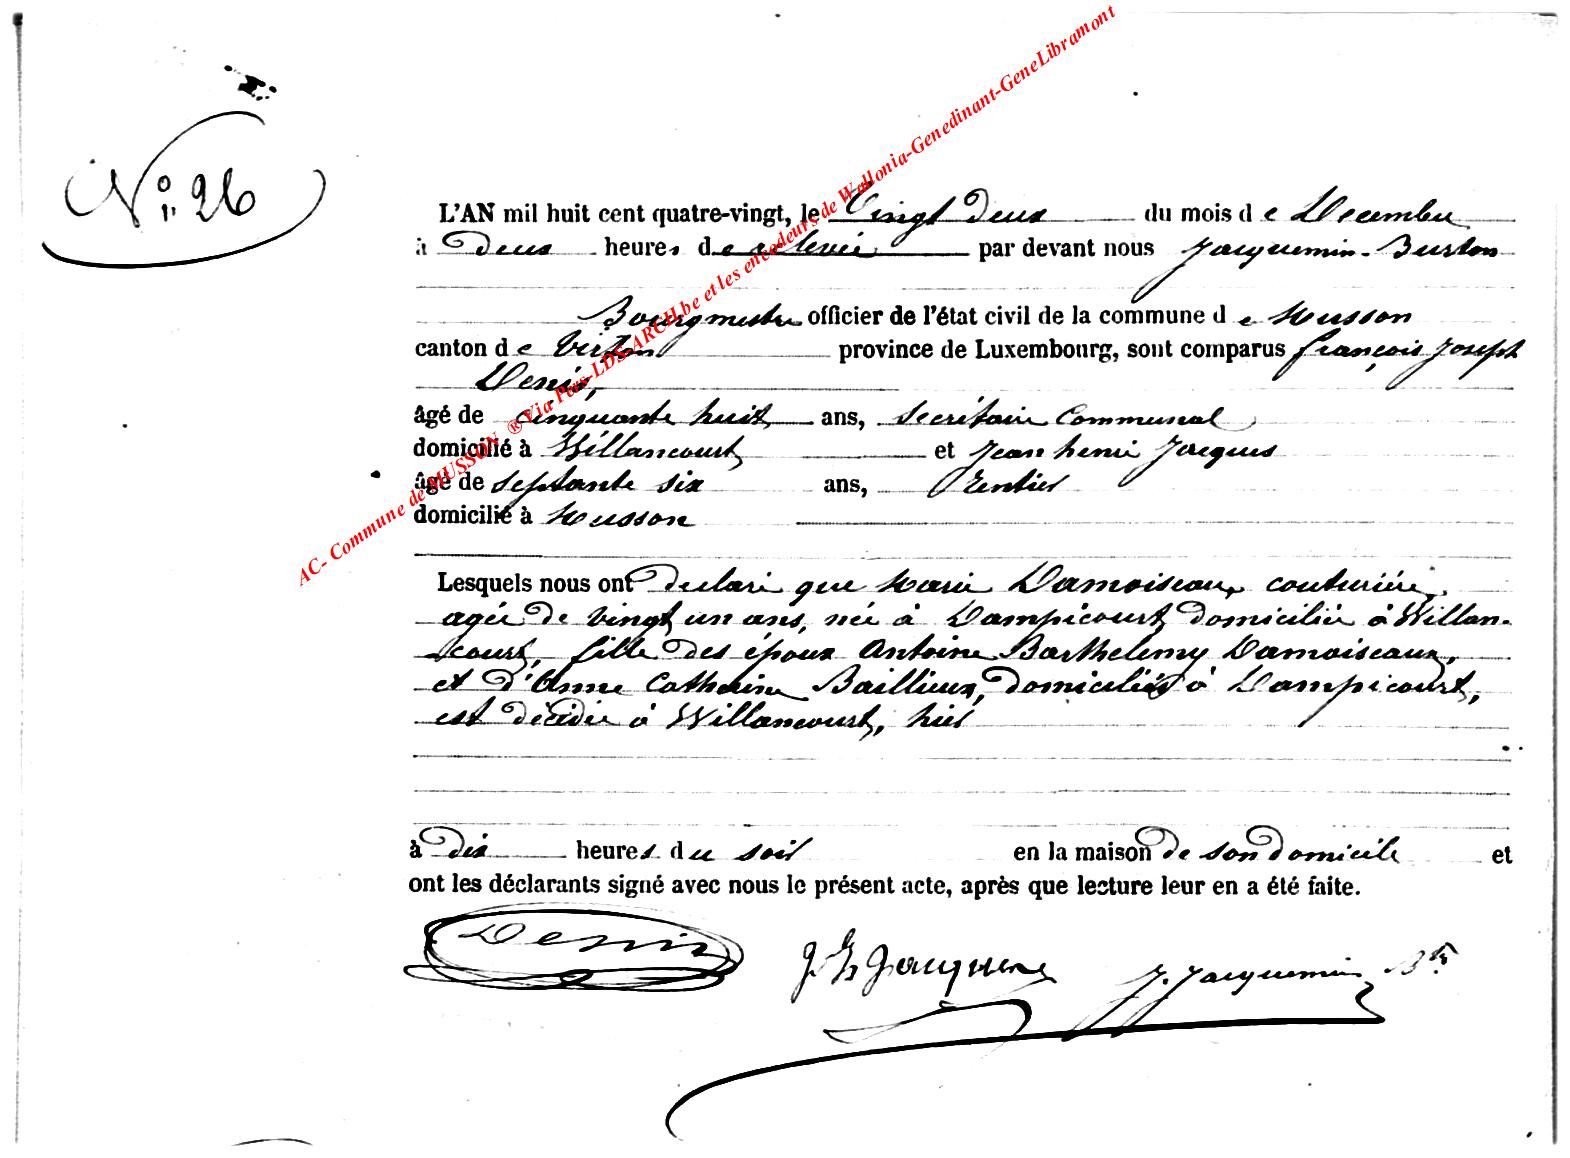 N° 26
L'AN mil huit cent quatre-vingt, le Vingt deux du mois d e Decembre
à Deux heures de relevée par devant nous Jacquemin-Burton
Bourgmestre officier de l'état civil de la commune d e Musson
canton d e Virton province de Luxembourg, sont comparus françois Joseph
Denis,
âgé de cinquante huit ans, Secrétaire Communal
domicilié à Willancourt et Jean henri Jacques
âgé de septante six ans, rentier
domicilié à Musson
Lesquels nous ont declaré que Marie Damoiseaux, couturière,
agée de vingt un ans, née à Dampicourt, domiciliée à Willan-
court, fille des époux Antoine Barthelemy Damoiseaux,
et d'Anne Catherine Baillieux, domiciliés à Dampicourt,
est décédée à Willancourt, hier
à dix heures du soir en la maison de son domicile et
ont les déclarants signé avec nous le présent acte, après que lecture leur en a été faite.
Denis J h Jacques J. Jacquemin Btn
AC- Commune de MUSSON ® Via Pers-LDS-ARCH.be et les encodeurs de Wallonia-Genedinant-GeneLibramont